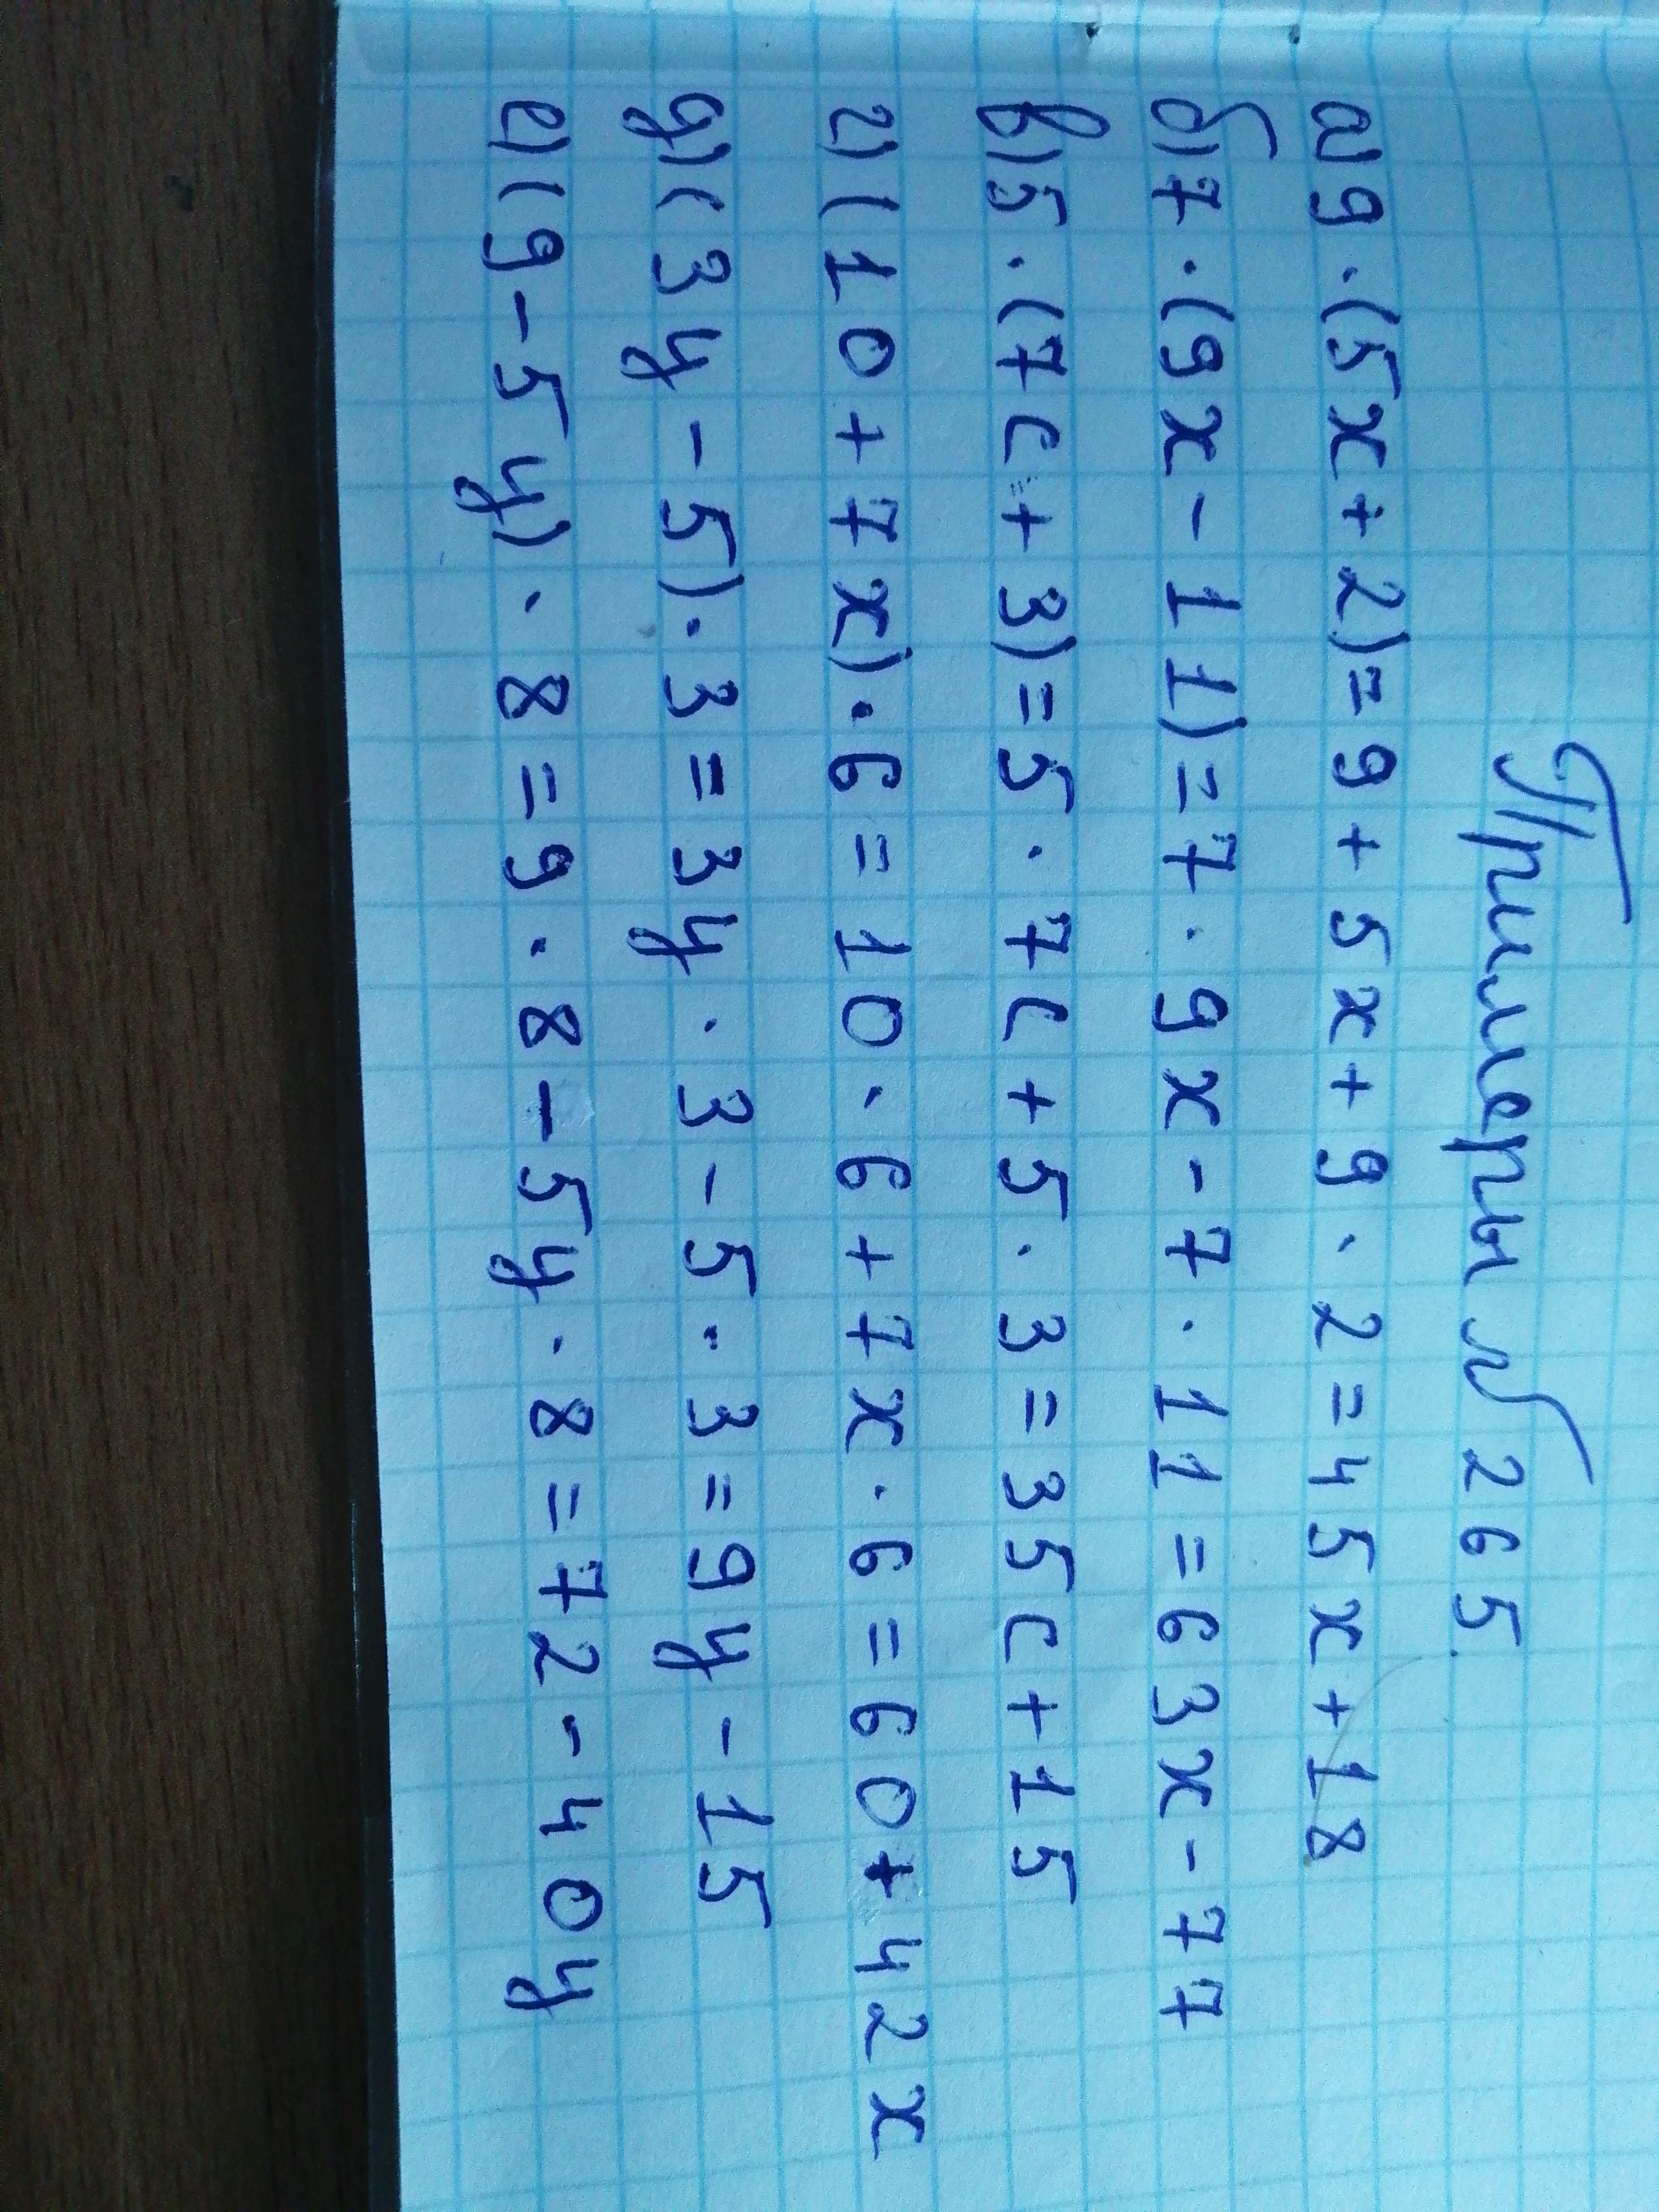 Примеры № 265.
а) 9 · (5x + 2) = 9 + 5x + 9 · 2 = 45x + 18
б) 7 · (9x - 11) = 7 · 9x - 7 · 11 = 63x - 77
в) 5 · (7c + 3) = 5 · 7c + 5 · 3 = 35c + 15
г) (10 + 7x) · 6 = 10 · 6 + 7x · 6 = 60 + 42x
д) (3y - 5) · 3 = 3y · 3 - 5 · 3 = 9y - 15
е) (9 - 5y) · 8 = 9 · 8 - 5y · 8 = 72 - 40y